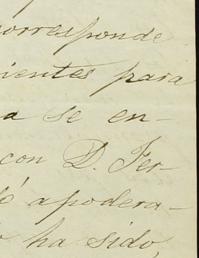 corresponde
ientes para
a se en-
con D. Fer-
ó apodera-
ha sido,